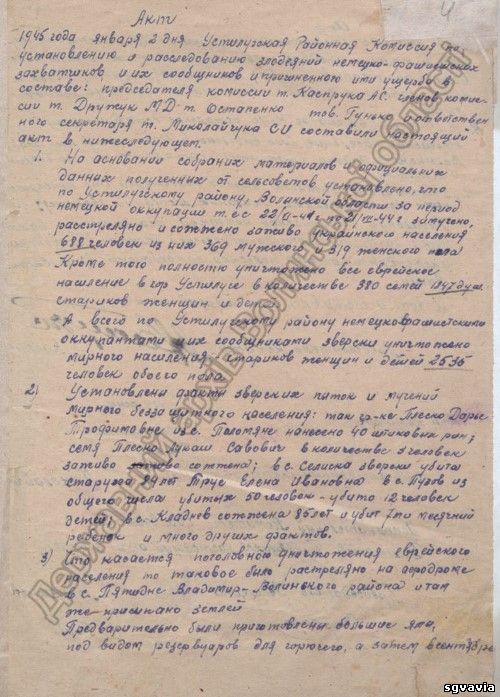 4
Акт
1945 года января 2 дня Устилугская Районная Комиссия по
установлению и расследованию злодеяний немецко-фашистских
захватчиков и их сообщников и причиненного ими ущерба в
составе: председателя комиссии т. Каспрука А.С. членов комис-
сии т. Друпсук М.Д. т. Остапенко тов. Гунько и ответствен
ного секретаря т. Миколайчука СИ составили настоящий
акт в нижеследующем.
1. На основании собраних материалов и официальних
данных полученных от сельсоветов установлено, что
по Устилугскому району, Волинской области за период
немецкой оккупации т.е с 22/VI-41г по 21/VII-44г замучено,
расстреляно и сожжено заживо украинского населения
688 человек из них 369 мужского и 319 женского пола
Кроме того полностью уничтожено все еврейское
население в гор Устилуге в количестве 380 семей 1847 душ.
стариков женщин и детей
А всего по Устилугскому району немецко-фашистскими
оккупантами и их сообщниками зверски уничтожено
мирного населения стариков женщин и детей 2535
человек обоего пола
2) Установлены факти зверских пыток и мучений
мирного беззащитного населения: так гр-ке Плеско Дарье
Трофимовне из с. Поломяне нанесено 40 штиковых ран;
семя Плеско Лукаш Савович в количестве 5 человек
заживо сожжена; в с. Селиска зверски убита
старуха 89 лет Трус Елена Ивановна в с. Пузов из
общего числа убитых 50 человек - убито 12 человек
детей; в с. Кладнев сожжена 85 лет и убит 7ми месячний
ребенок и много других фактов.
3) Что касается поголовного уничтожения еврейского
населения то таковое было растреляно на аэродроме
в с. Пятидне Владимир-Волинского района и там
же присипано землей
Предварительно были приготовлены большие ями,
под видом резервуаров для горючего, а затем в сентябре
Державний архів Волинської області
sgvavia